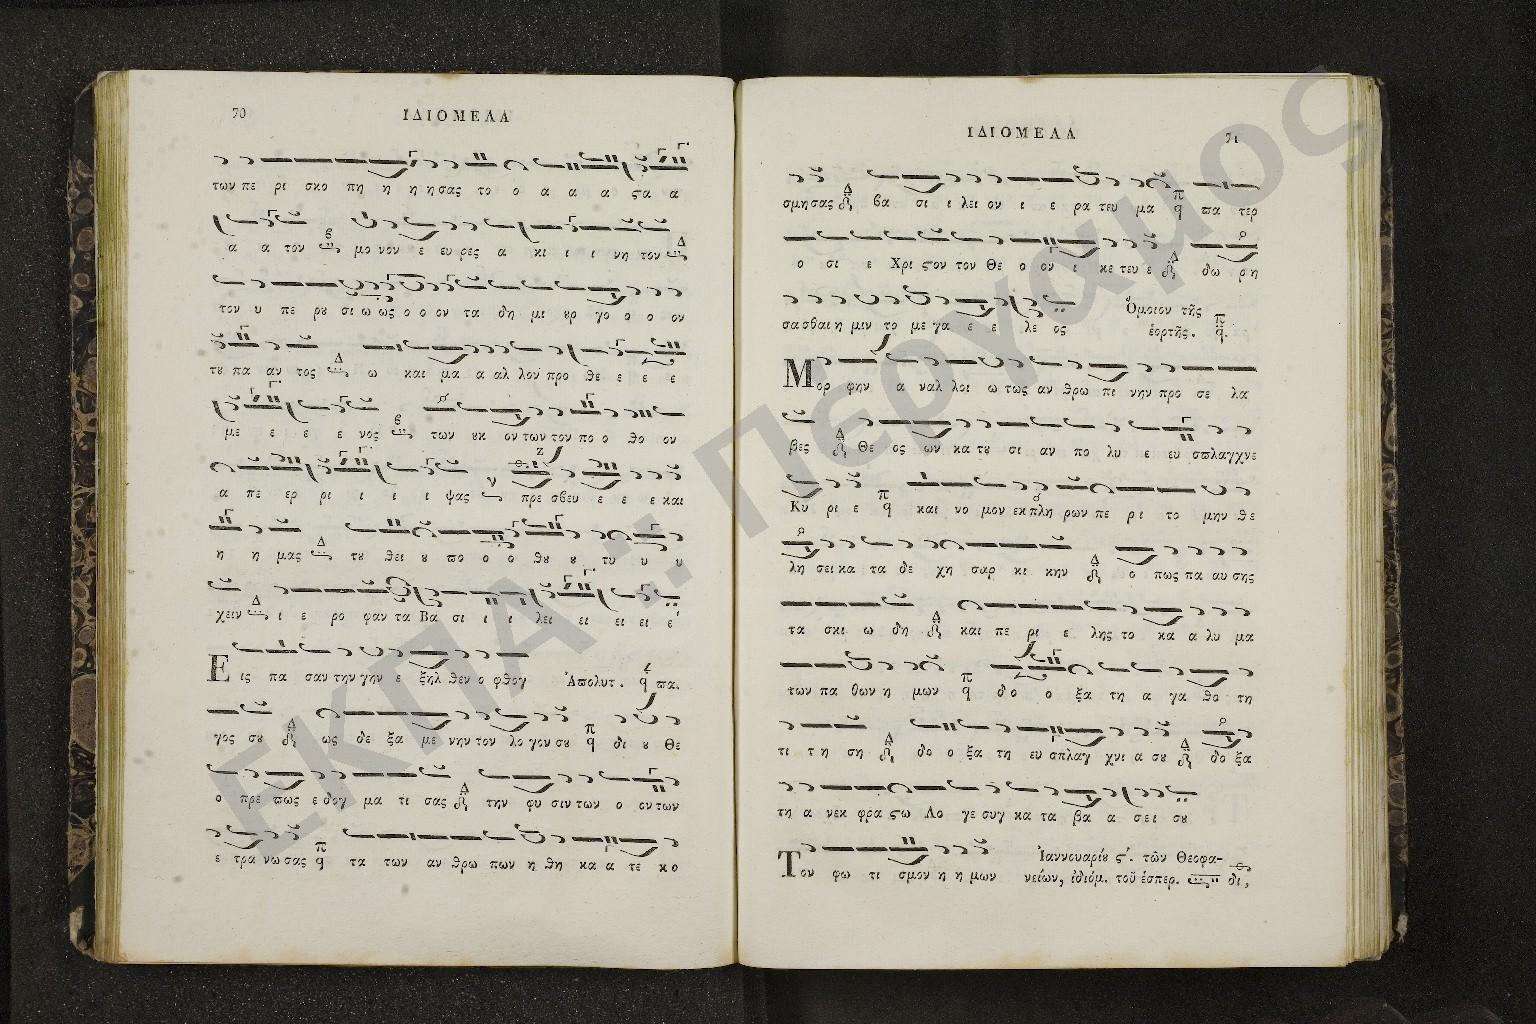 70
ΙΔΙΟΜΕΛΑ
των πε ρι σκο πη η η η σας το ο α α α ςα α
α α τον μο νον ε ευ ρες α κι ι ι νη τον
τον υ πε ρȣ σι ω ως ο ο ον τα δη μι ȣρ γο ο ο ον
τȣ πα αν τος ω και μα α αλ λον προ θε ε ε ε
με ε ε ε νος των ȣκ ον των τον πο ο θο ον
α πε ερ ρι ι ι ι ψας πρε σβευ ε ε ε και
η η μας τȣ θει ȣ ϖο ο ο θȣ ȣ τυ υ υ
χειν ι ε ρο φαν τα Βα σι ι ι λει ει ει ει ε
Εις πα σαν την γην ε ξηλ θεν ο φθογ Ἀπολυτ. ϖα.
γος σȣ ως δε ξα με νην τον λο γον σȣ δι ȣ Θε
ο πρε ϖως ε δογ μα τι σας την φυ σιν των ο ον των
ε τρα νω σας τα των αν θρω πων η θη κα α τε κο
ΙΔΙΟΜΕΛΑ
71
σμη σας βα σι ι λει ον ι ε ρα τευ μα ϖα τερ
ο σι ε Χρι ςον τον Θε ο ον ι κε τευ ε δω ρη
σα σθαι η μιν το με γα ε ε λε ος Ὅμοιον τῆς
ἑορτῆς.
Μορ φην α ναλ λοι ω τως αν θρω πι νην προ σε λα
βες Θε ος ων κα τȣ σι αν πο λυ ε ευ σϖλαγχνε
Κυ ρι ε και νο μον εκ πλη ρων πε ρι το μην θε
λη σει κα τα δε χη σαρ κι κην ο πως πα αυ σης
τα σκι ω δη και πε ρι ε λης το κα α λυ μα
των πα θων η μων δο ο ξα τη α γα θο τη
τι τ η ση δο ο ξα τη ευ σπλαγ χνι α σȣ δο ξα
τη α νεκ φρα ςω Λο γε συγ κα τα βα α σει σȣ
Τον φω τι σμον η η μων Ἰαννουαρίȣ ς΄. τῶν Θεοφα-
νείων, ἰδιόμ. τοῦ ἑσπερ. δι,
ΕΚΠΑ :: Πέργαμος